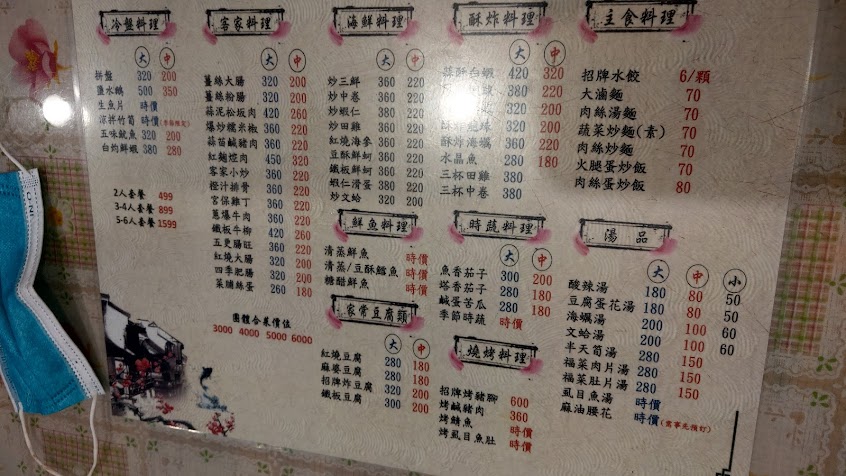 冷盤料理
大 中
拼盤 320 200
鹽水鵝 500 350
生魚片 時價
涼拌竹筍 時價
五味魷魚 320 200
白灼鮮蝦 380 280
2人套餐 499
3-4人套餐 899
5-6人套餐 1599
客家料理
大 中
薑絲大腸 320 200
薑絲粉腸 320 200
蒜泥松坂肉 320 200
爆炒糯米椒 360 220
蒜苗鹹豬肉 360 220
紅麴焢肉 450 320
客家小炒 360 220
橙汁排骨 360 220
宮保雞丁 360 220
蔥爆牛肉 360 220
鐵板牛柳 420 260
五更腸旺 360 220
紅燒大腸 360 220
四季肥腸 360 220
菜脯絲蛋 260 180
團體合菜價位
3000 4000 5000 6000
海鮮料理
大 中
炒三鮮 360 220
炒中卷 360 220
炒蝦仁 360 220
炒田雞 360 220
紅燒海參 360 220
豆酥鮮蚵 360 220
鐵板鮮蚵 360 220
蝦仁滑蛋 380 220
炒文蛤 320 200
鮮魚料理
清蒸鮮魚 時價
清蒸/豆酥鱈魚 時價
糖醋鮮魚 時價
家常豆腐類
大 中
紅燒豆腐 280 180
麻婆豆腐 280 180
招牌炸豆腐 320 200
鐵板豆腐 300 200
酥炸料理
大 中
蒜酥白蝦 420 320
380
酥炸海蠣 360 220
水晶魚 280 180
三杯田雞 380
三杯中卷 380
時蔬料理
大 中
魚香茄子 300 200
塔香茄子 280 180
鹹蛋苦瓜 280 180
季節時蔬 時價
燒烤料理
招牌烤豬腳 600
烤鹹豬肉 360
烤鯖魚 時價
烤虱目魚肚 時價
主食料理
招牌水餃 6/顆
大滷麵 70
肉絲湯麵 70
蔬菜炒麵(素) 70
肉絲炒麵 70
火腿蛋炒飯 70
肉絲蛋炒飯 80
湯品
大 中 小
酸辣湯 180 80 50
豆腐蛋花湯 180 80 50
海蠣湯 200 100 60
文蛤湯 200 100 60
半天筍湯 280 150
福菜肉片湯 280 150
福菜肚片湯 280 150
虱目魚湯 時價
麻油腰花 時價(需事先預訂)